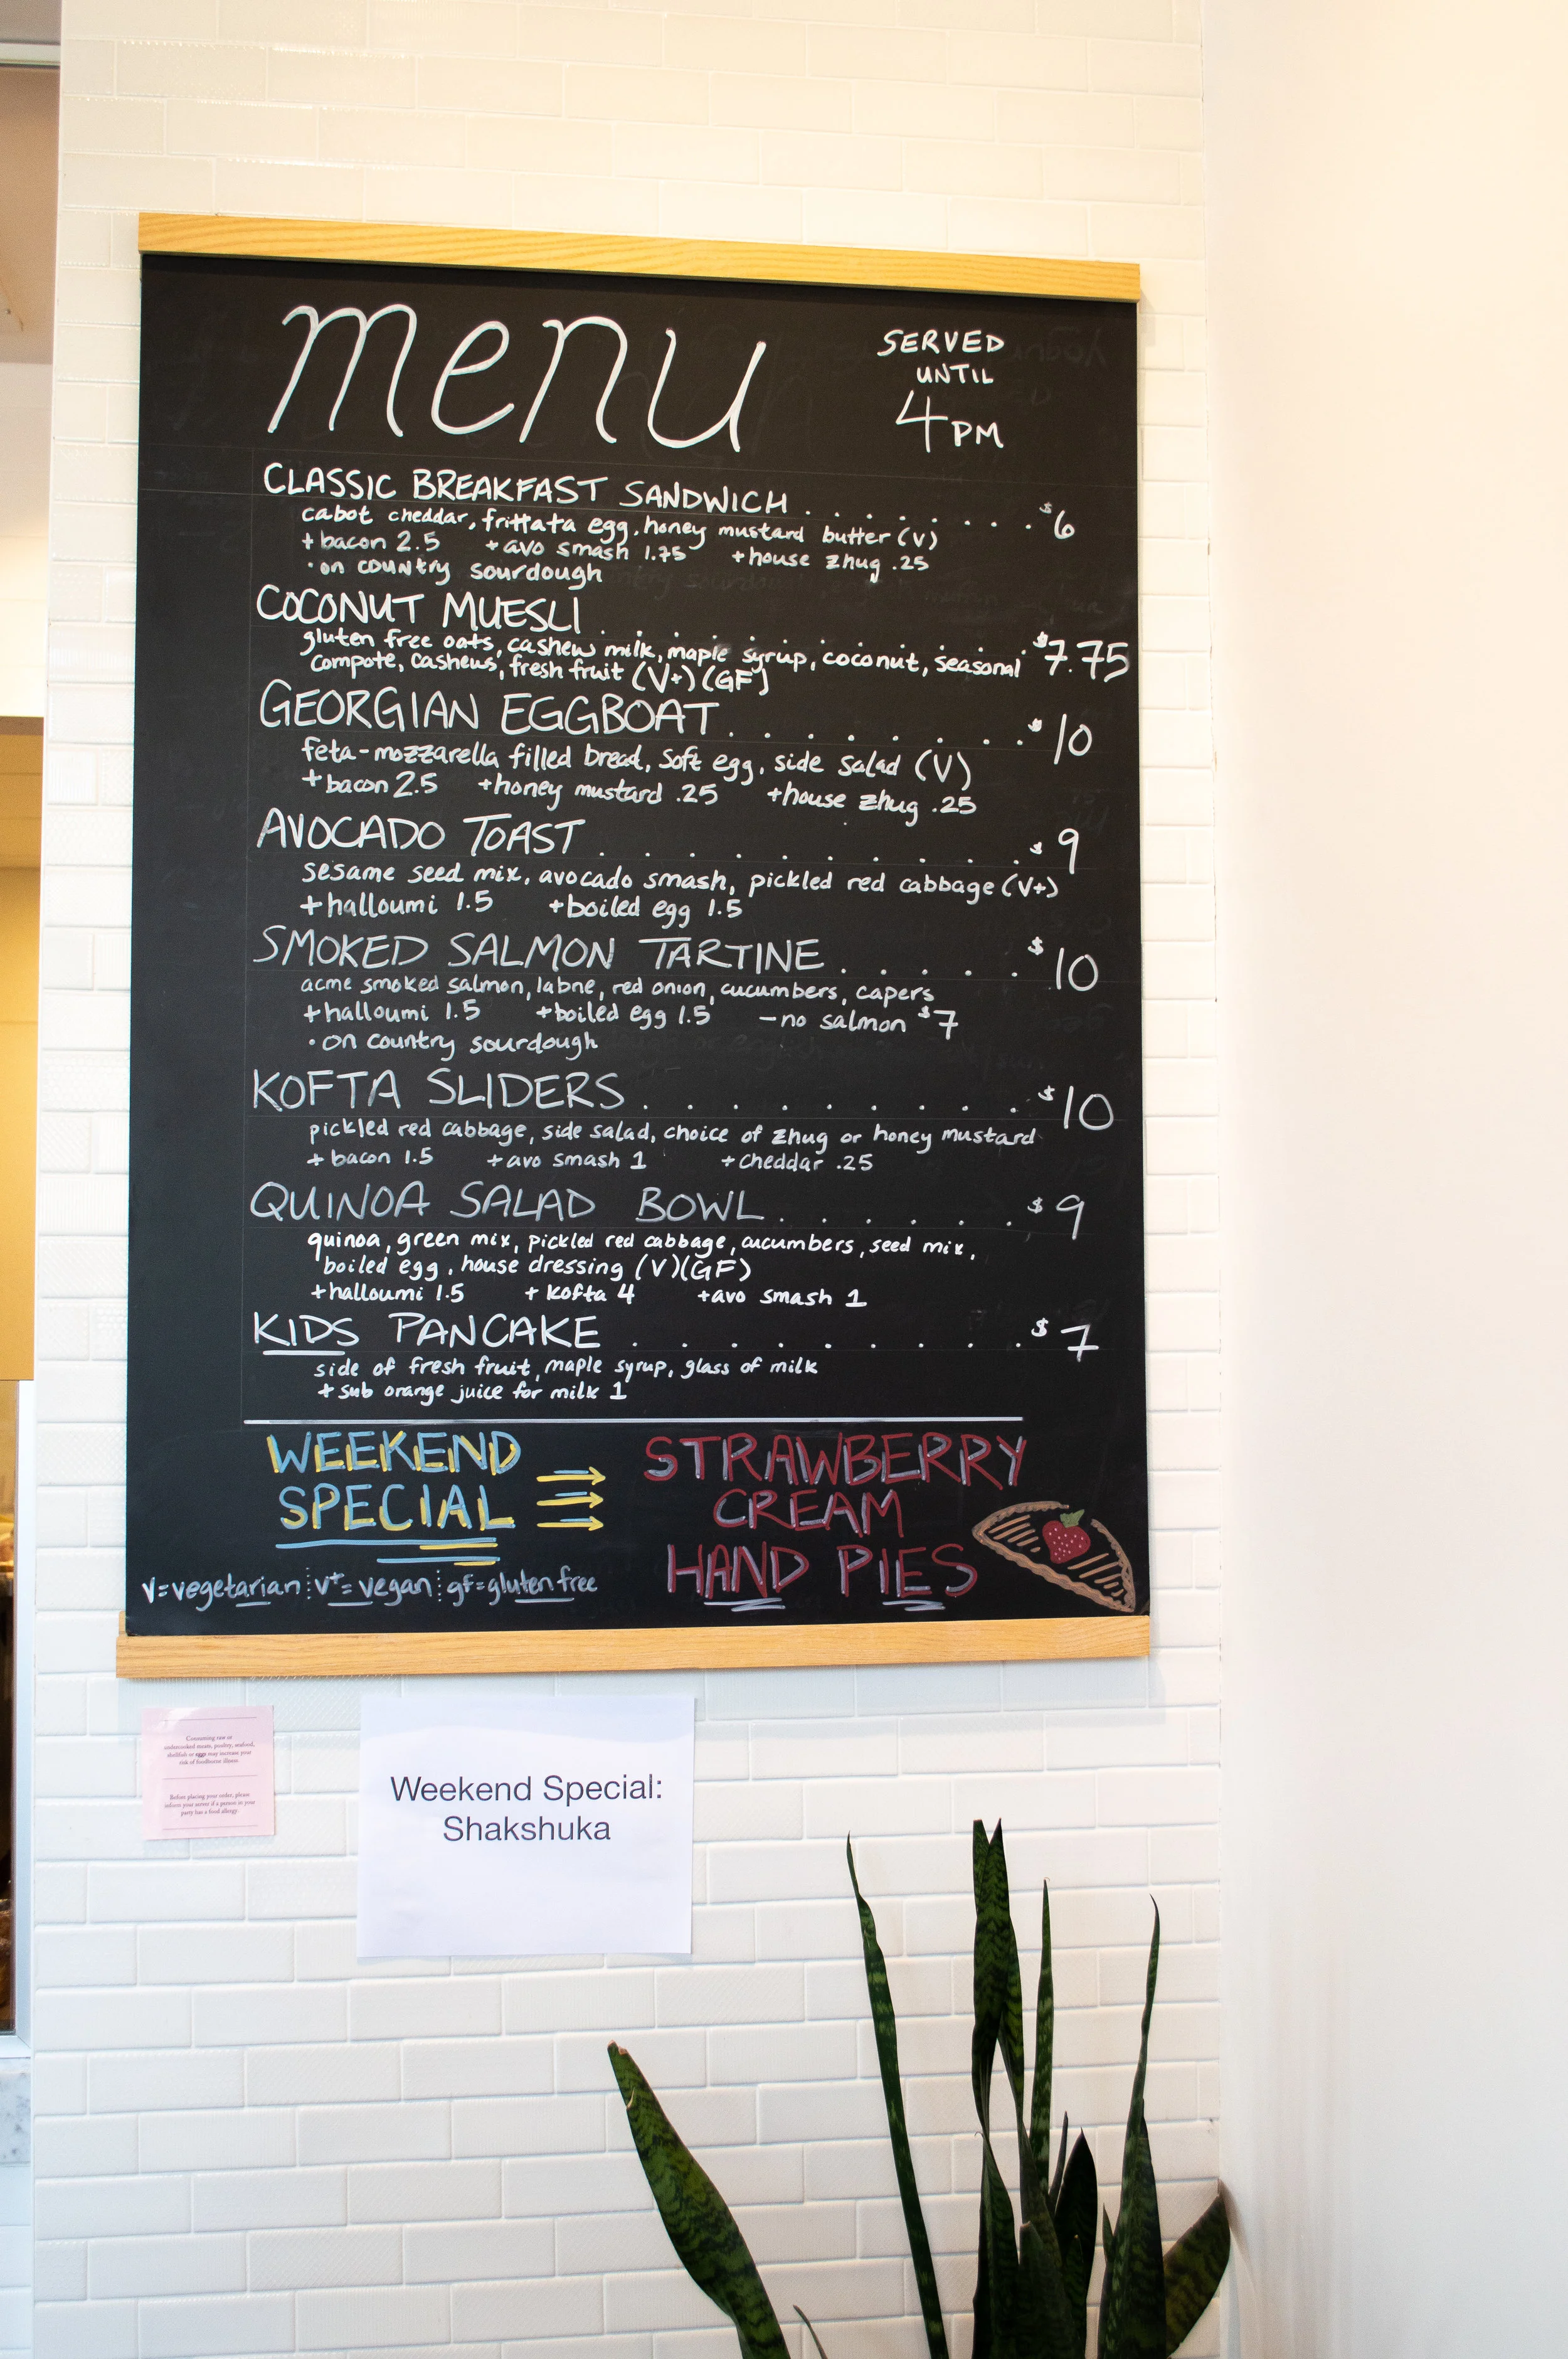 menu
SERVED
UNTIL
4PM
CLASSIC BREAKFAST SANDWICH . . . . . . . . $6
cabot cheddar, frittata egg, honey mustard butter (V)
+ bacon 2.5 + avo smash 1.75 + house zhug .25
• on country sourdough
COCONUT MUESLI . . . . . . . . . . $7.75
gluten free oats, cashew milk, maple syrup, coconut, seasonal
compote, cashews, fresh fruit (V+) (GF)
GEORGIAN EGGBOAT . . . . . . . . . $10
feta-mozzarella filled bread, soft egg, side salad (V)
+ bacon 2.5 + honey mustard .25 + house zhug .25
AVOCADO TOAST . . . . . . . . . . $9
sesame seed mix, avocado smash, pickled red cabbage (V+)
+ halloumi 1.5 + boiled egg 1.5
SMOKED SALMON TARTINE . . . . . . $10
acme smoked salmon, labne, red onion, cucumbers, capers
+ halloumi 1.5 + boiled egg 1.5 - no salmon $7
• on country sourdough
KOFTA SLIDERS . . . . . . . . . $10
pickled red cabbage, side salad, choice of zhug or honey mustard
+ bacon 1.5 + avo smash 1 + cheddar .25
QUINOA SALAD BOWL . . . . . . $9
quinoa, green mix, pickled red cabbage, cucumbers, seed mix,
boiled egg, house dressing (V)(GF)
+ halloumi 1.5 + kofta 4 + avo smash 1
KIDS PANCAKE . . . . . . . . . $7
side of fresh fruit, maple syrup, glass of milk
+ sub orange juice for milk 1
WEEKEND
SPECIAL
STRAWBERRY
CREAM
HAND PIES
V=vegetarian V+=vegan gf=gluten free
Consuming raw or
undercooked meats, poultry, seafood,
shellfish or eggs may increase your
risk of foodborne illness
Before placing your order, please
inform your server if a person in your
party has a food allergy
Weekend Special:
Shakshuka